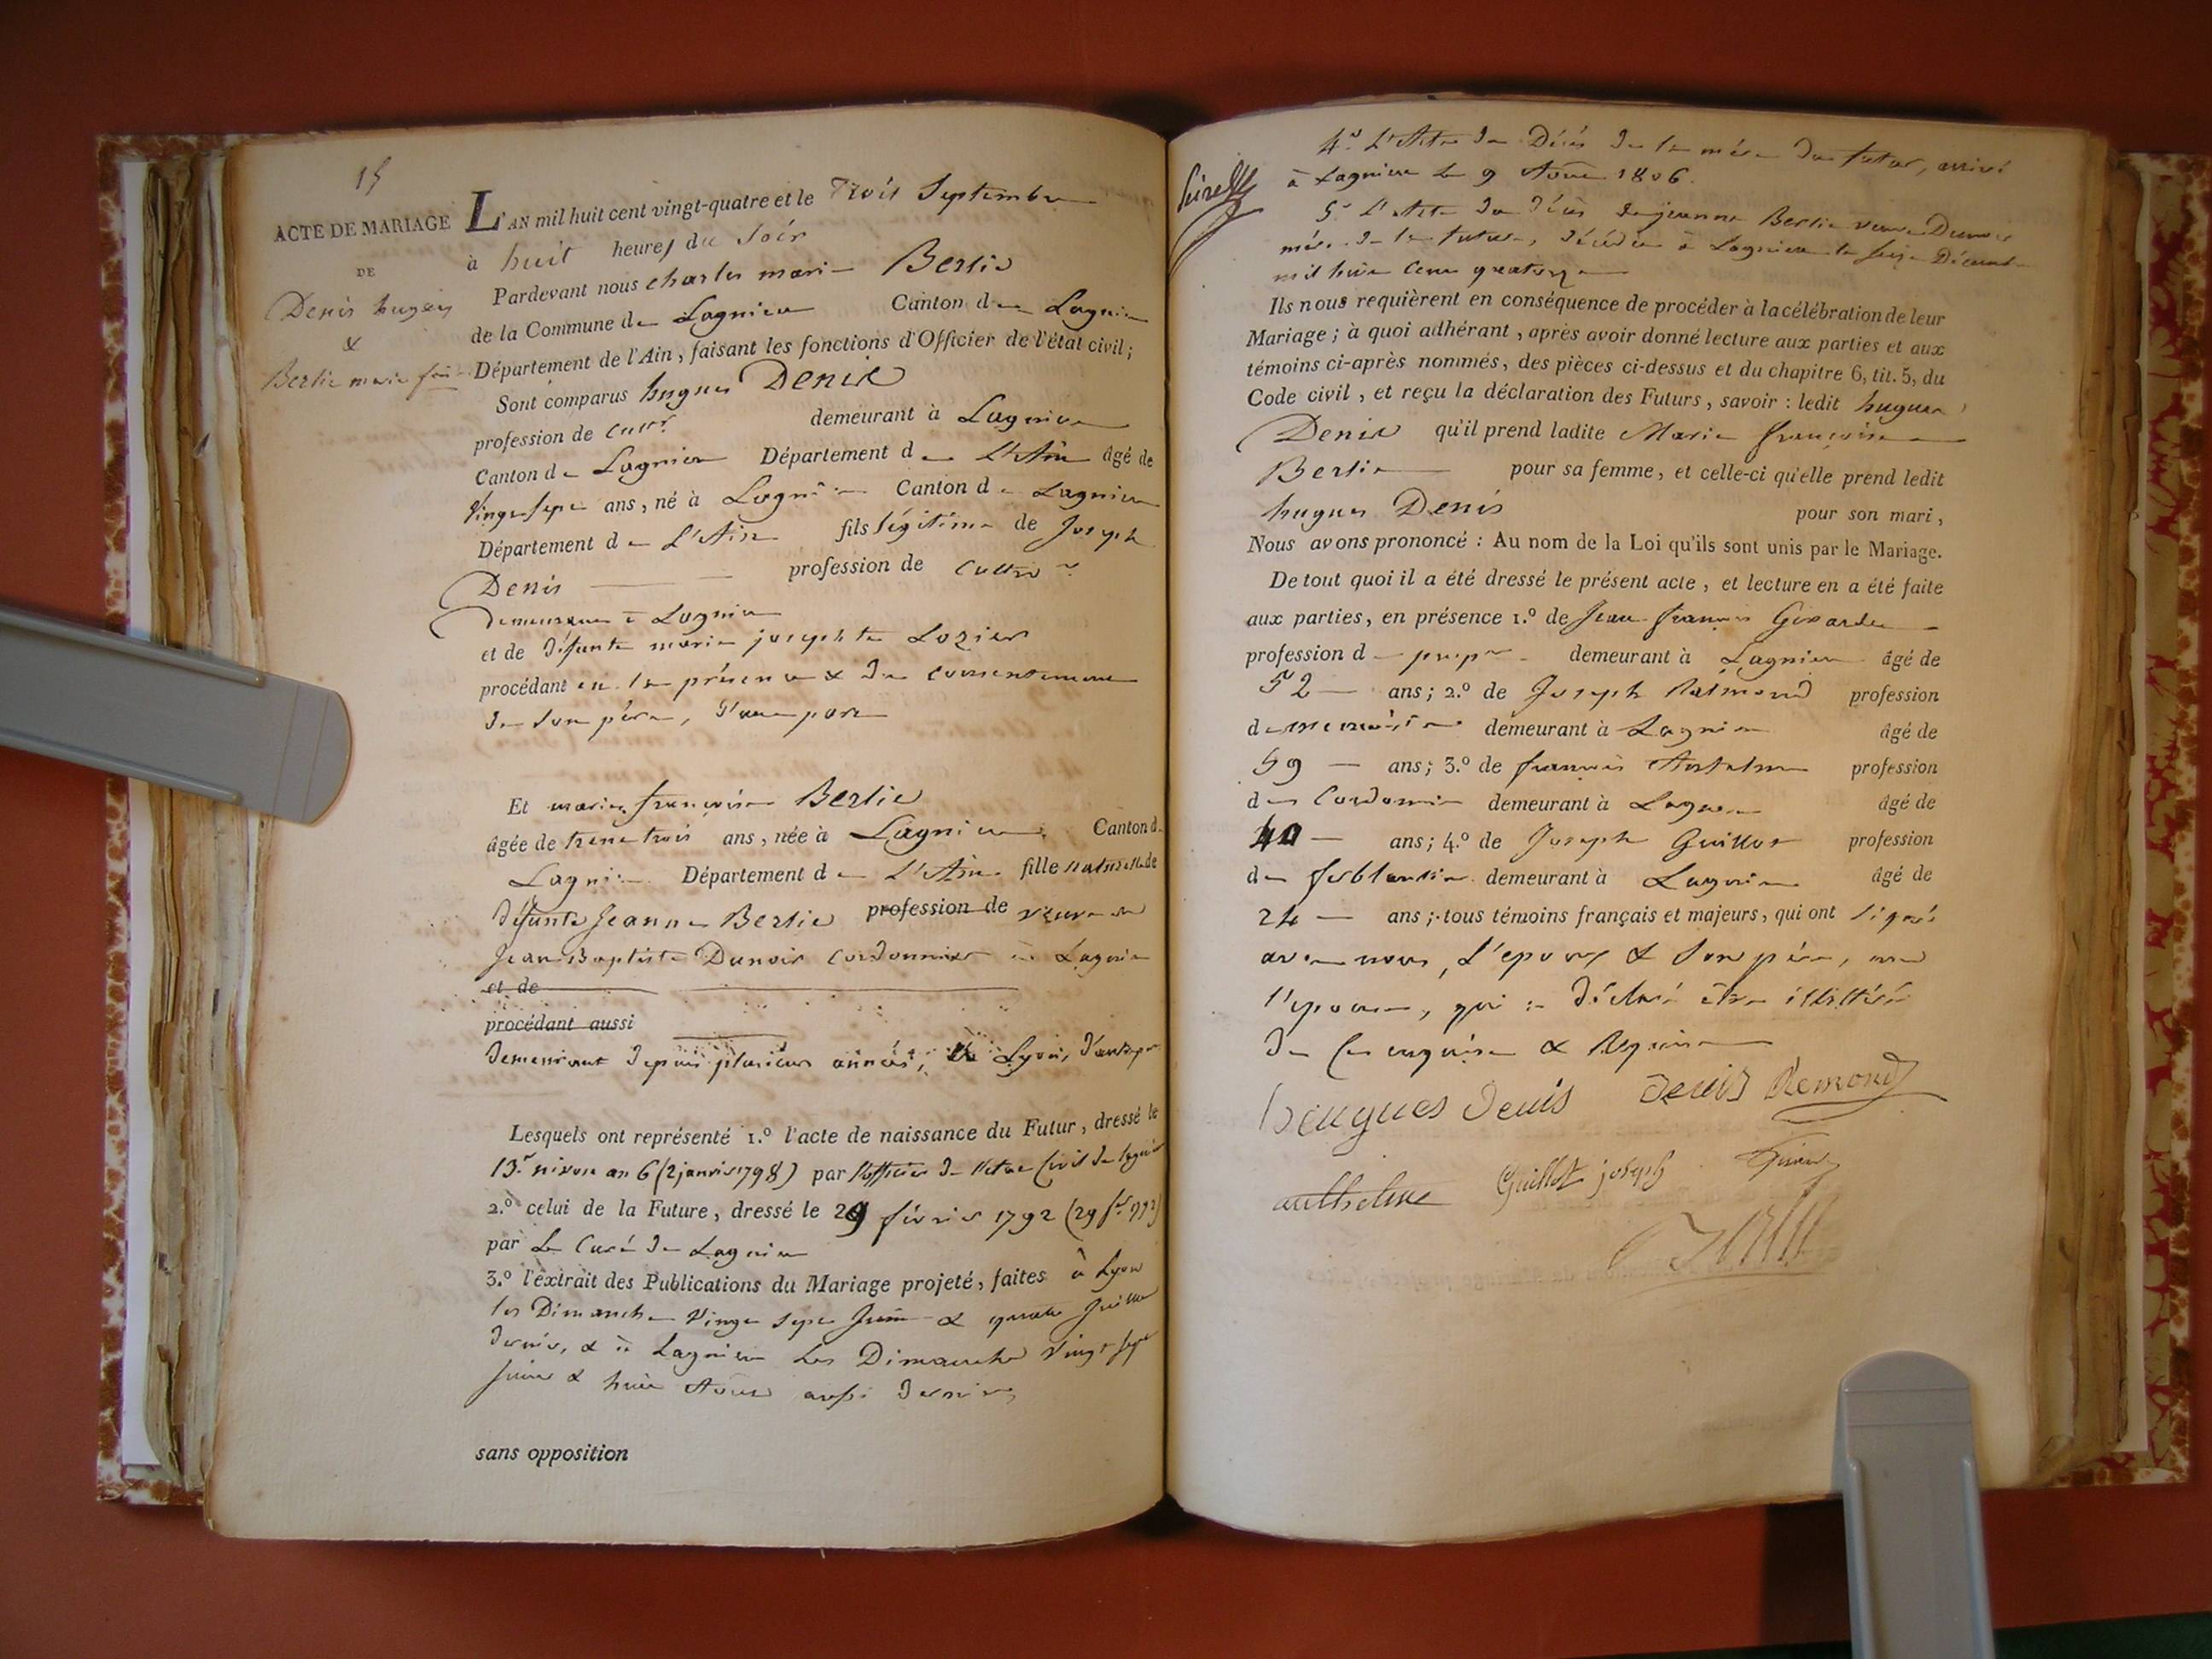 15
ACTE DE MARIAGE
DE
Denis hugues
&
Berlie marie
L'AN mil huit cent vingt-quatre et le Trois Septembre
à huit heures du Soir
Pardevant nous charles marie Berlio
de la Commune de Lagnieu Canton de Lagnieu
Département de l'Ain, faisant les fonctions d'Officier de l'état civil;
Sont comparus hugues Denis
profession de cultr demeurant à Lagnieu
Canton de Lagnieu Département de L'Ain âgé de
Vingt sept ans, né à Lagnieu Canton de Lagnieu
Département de L'Ain fils légitime de Joseph
Denis profession de Cultivr
demeurant à Lagnieu
et de défunte marie josephte Lozier
procédant en la présence & du consentement
de son père, d'une part
Et marie françoise Berlio
âgée de trente trois ans, née à Lagnieu Canton de
Lagnieu Département de L'Ain fille naturelle de
défunte Jeanne Berlio profession de veuve de
Jean Baptiste Dunoir Cordonnier à Lagnieu
et de
procédant aussi
demeurant depuis plusieurs années, à Lyon, d'autre part
Lesquels ont représenté 1.º l'acte de naissance du Futur, dressé le
13.e nivose an 6 (2 janvier 1798) par l'officier de l'état civil de Lagnieu
2.º celui de la Future, dressé le 29 février 1792 (29 fer 1792)
par Le Curé de Lagnieu
3.º l'extrait des Publications du Mariage projeté, faites à Lyon
les Dimanche Vingt sept Juin & quatre Juillet
dernier, & à Lagnieu les Dimanche vingt sept
juin & huit Aout aussi dernier,
sans opposition
4.º L'Acte de Décès de la mère du futur, arrivé
à Lagnieu le 9 Aout 1806.
5.º L'Acte de décès de jeanne Berlie veuve Dunoir
mère de la future, décédée à Lagnieu le seize Décembre
mil huit cent quatorze
Ils nous requièrent en conséquence de procéder à la célébration de leur
Mariage; à quoi adhérant, après avoir donné lecture aux parties et aux
témoins ci-après nommés, des pièces ci-dessus et du chapitre 6, tit. 5, du
Code civil, et reçu la déclaration des Futurs, savoir : ledit hugues
Denis qu'il prend ladite Marie françoise
Berlie pour sa femme, et celle-ci qu'elle prend ledit
hugues Denis pour son mari,
Nous avons prononcé : Au nom de la Loi qu'ils sont unis par le Mariage.
De tout quoi il a été dressé le présent acte, et lecture en a été faite
aux parties, en présence 1.º de Jean françois Girardet
profession de propre demeurant à Lagnieu âgé de
52 ans; 2.º de Joseph Raimond profession
de menuisier demeurant à Lagnieu âgé de
59 ans; 3.º de françois Anthelme profession
de Cordonnier demeurant à Lagnieu âgé de
40 ans; 4.º de Joseph Guillot profession
de ferblantier demeurant à Lagnieu âgé de
24 ans; tous témoins français et majeurs, qui ont signé
avec nous, L'epoux & son père, non
l'epouse, qui a déclaré être illittérée
de ce enquise & Requise
heugues denis denis Remond
anthelme Guillot joseph